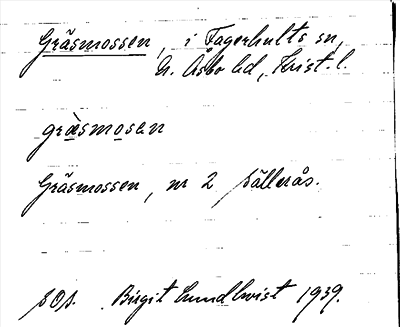 Gräsmossen, i Fagerhults sn,
N. Åsbo hd, Krist. l.
gräsmosen
Gräsmossen, nr 2 Källerås.
SOS. Birgit Lundkvist 1939.